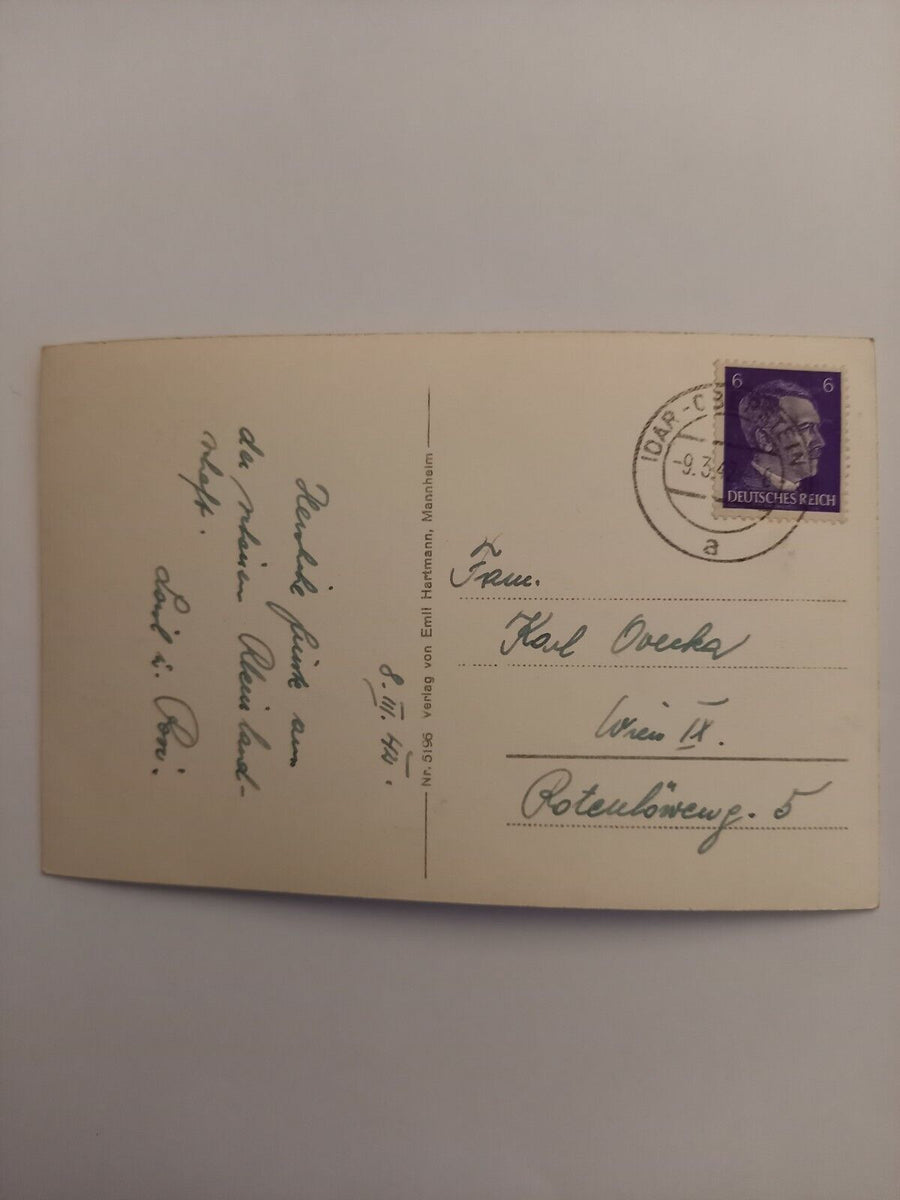 8. III. 44.
Herzliche Grüße aus
der schönen Rheinland-
schaft.
Karl u.
Nr. 5195 Verlag von Emil Hartmann, Mannheim
6 6
DEUTSCHES REICH
IDAR-O STEIN
-9.3.4
a
Fam.
Karl Ovecka
Wien IX.
Rotenlöweng. 5